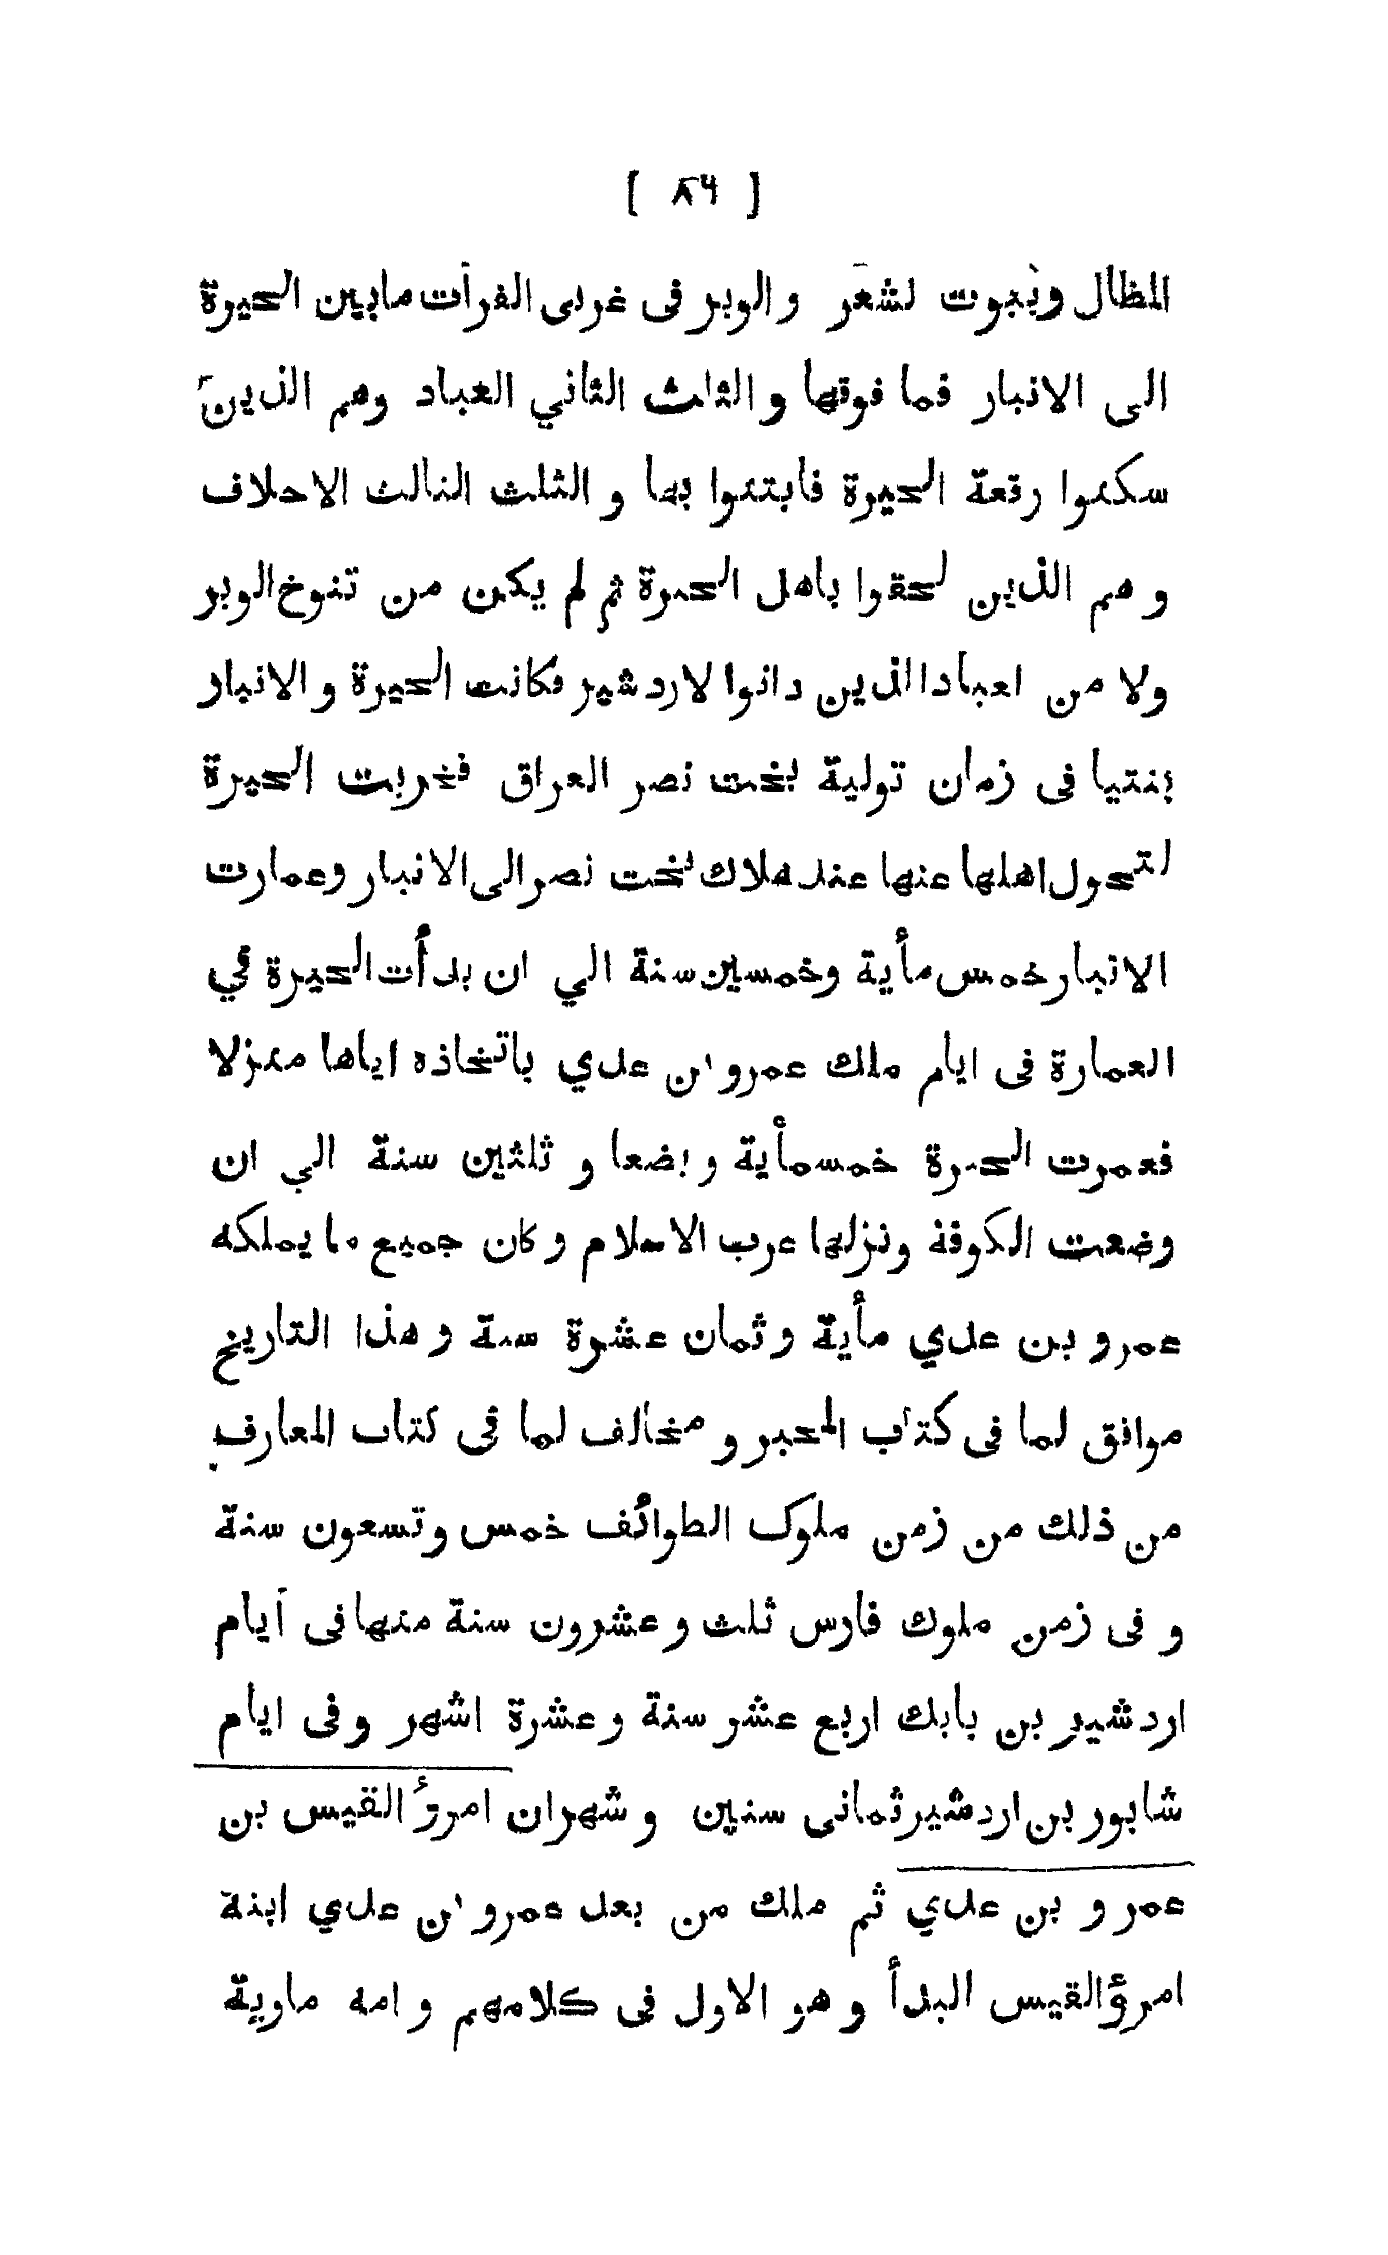 [ ٨٦ ]
المظال وببوت لشعر والوبر فى غربى الفرات مابين الحيرة
الى الانبار فما فوقها والثاث الثاني العباد وهم الذين
سكنوا رقعة الحيرة فابتنوا بها و الثلث الثالث الاحلاف
و هم الذين لحقوا باهل الحيرة ثم لم يكن من تنوخ الوبر
ولا من اعباد الذين دانوا لاردشير فكانت الحيرة و الانبار
بنتيا فى زمان تولية بخت نصر العراق فخربت الحيرة
لتحول اهلها عنها عند هلاك بخت نصر الى الانبار وعمارت
الانبار خمس مأية وخمسين سنة الي ان بدأت الحيرة في
العمارة فى ايام ملك عمرو بن عدي باتخاذه اياها منزلا
فعمرت الحيرة خمسمأية و بضعا و ثلثين سنة الي ان
وضعت الكوفة ونزلها عرب الاسلام و كان جميع ما يملكه
عمرو بن عدي مأية و ثمان عشرة سنة و هذا التاريخ
موافق لما فى كتاب المحبر و مخالف لما فى كتاب المعارف
من ذلك من زمن ملوک الطوائف خمس وتسعون سنة
و فى زمن ملوك فارس ثلث و عشرون سنة منها فى أيام
اردشير بن بابك اربع عشر سنة وعشرة اشهر وفى ايام
شابور بن اردشير ثمانى سنين و شهران امرؤ القيس بن
عمر و بن عدي ثم ملك من بعد عمرو بن عدي ابنة
امرؤ القيس البدأ و هو الاول فى كلامهم و امه ماوية